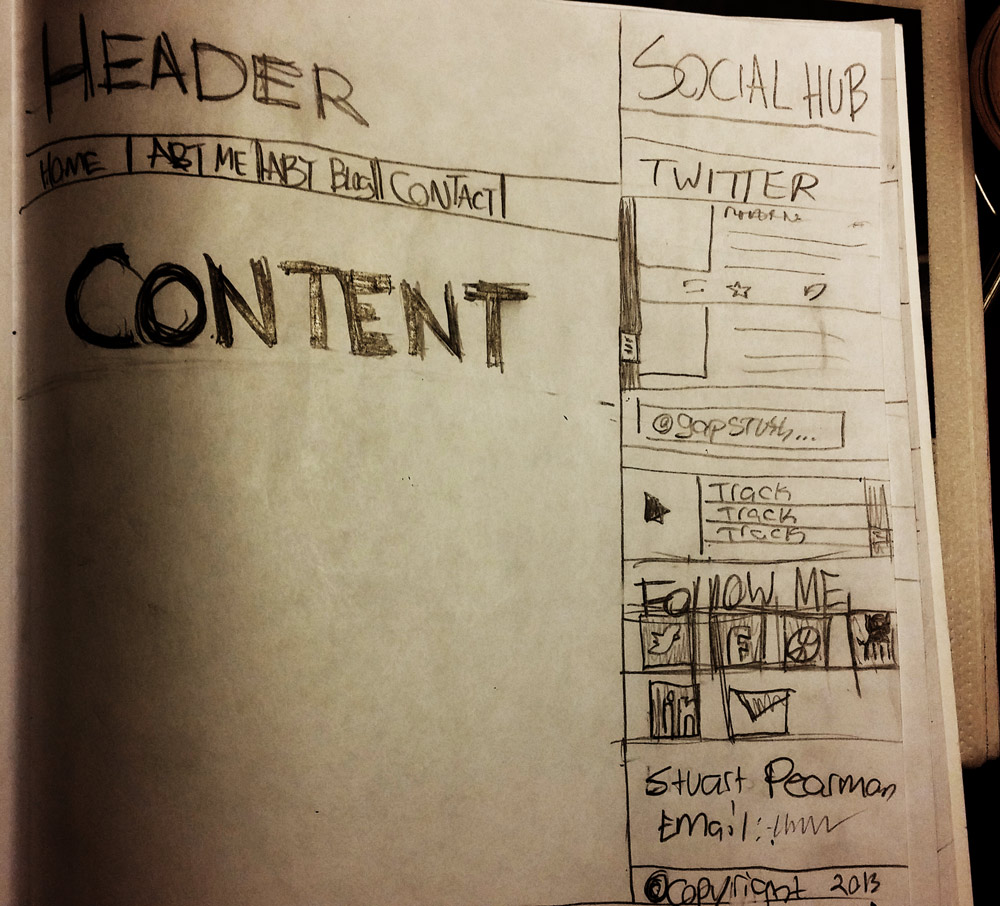 HEADER
HOME ABT ME ABT BLOG CONTACT
CONTENT
SOCIAL HUB
TWITTER
Track
Track
Track
FOLLOW ME
f
in
Stuart Pearman
Email:
©copyright 2013